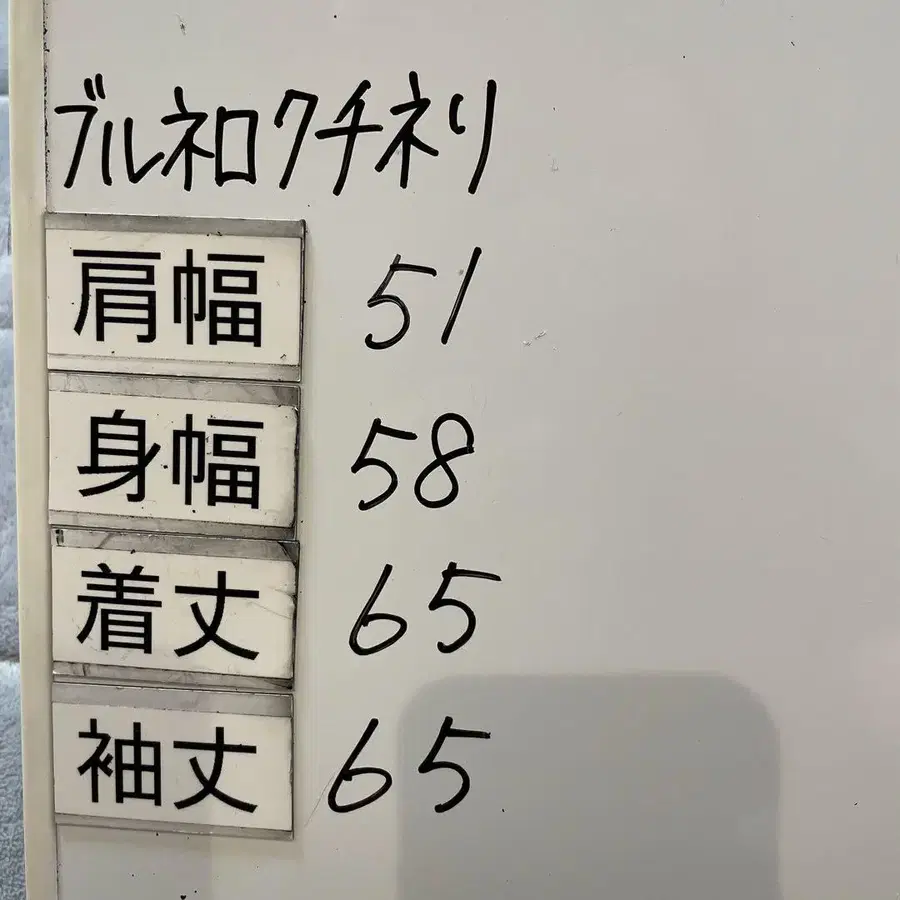 ブルネロクチネリ
肩幅 51
身幅 58
着丈 65
袖丈 65